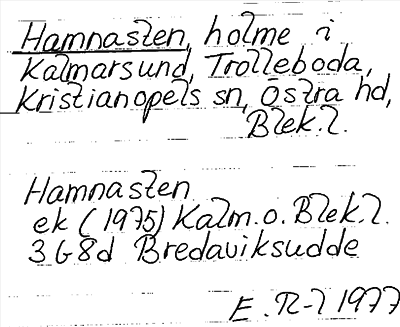 Hamnasten, holme i
Kalmarsund, Trolleboda,
Kristianopels sn, Östra hd,
Blek.l.
Hamnasten
ek (1975) Kalm.o.Blek.l.
3G8d Bredaviksudde
E.R-l 1977